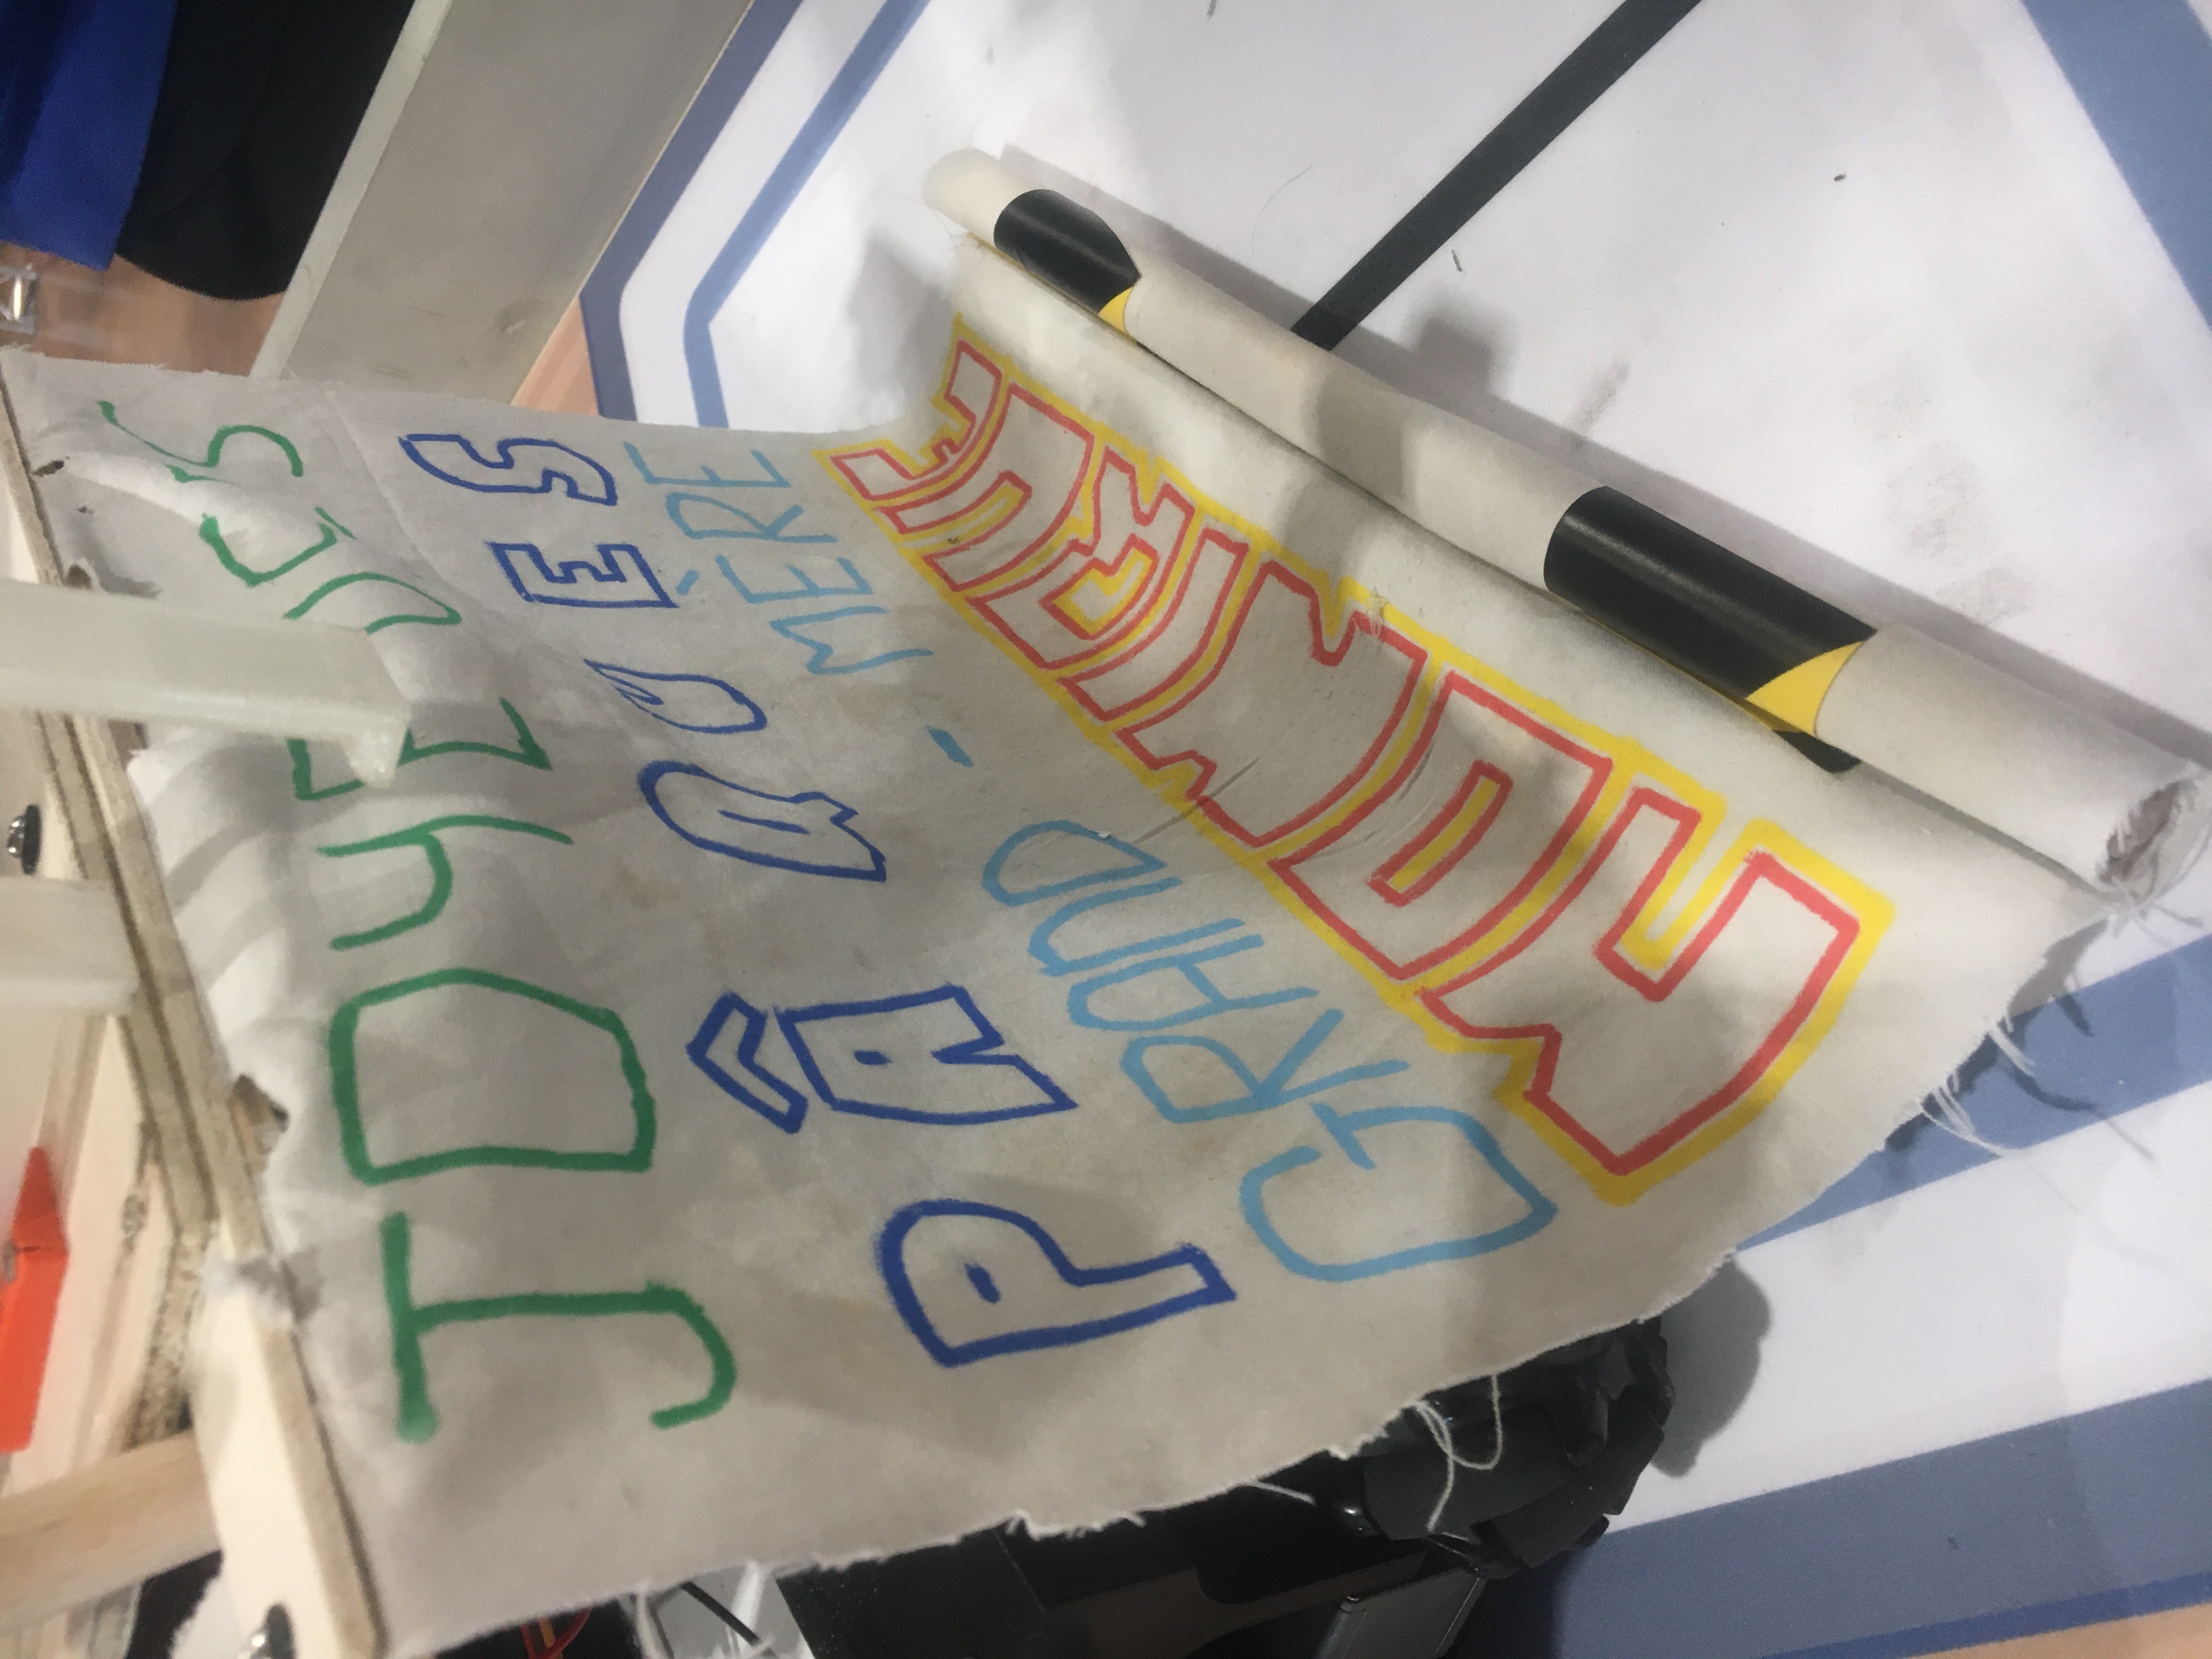 JOYEUSES
PÂQUES
GRAND-MÈRE
MONIQUE